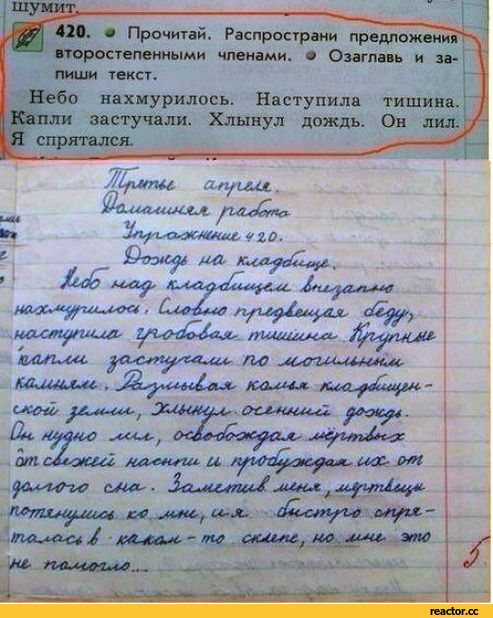 шумит.
420. Прочитай. Распространи предложения
второстепенными членами. Озаглавь и за-
пиши текст.
Небо нахмурилось. Наступила тишина.
Капли застучали. Хлынул дождь. Он лил.
Я спрятался.
Третье апреля.
Домашняя работа
Упражнение 420.
Дождь на кладбище.
Небо над кладбищем внезапно
нахмурилось. Словно предвещая беду,
наступила гробовая тишина. Крупные
капли застучали по могильным
камням. Размывая комья кладбищен-
ской земли, хлынул осенний дождь.
Он нудно лил, освобождая мёртвых
от свежей насыпи и пробуждая их от
долгого сна. Заметив меня, мертвецы
потянулись ко мне, и я быстро спря-
талась в каком-то склепе, но мне это
не помогло...
5
reactor.cc